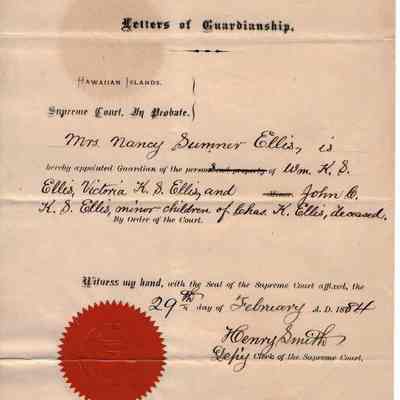 Letters of Guardianship.
HAWAIIAN ISLANDS.
Supreme Court, In Probate.
Mrs. Nancy Sumner Ellis, is
hereby appointed Guardian of the person and property of Wm. K. S.
Ellis, Victoria K. S. Ellis, and Minor, John C.
K. S. Ellis, minor children of Chas. K. Ellis, deceased.
By Order of the Court.
Witness my hand, with the Seal of the Supreme Court affixed, the
29th day of February A. D. 1884
Henry Smith
Dep'y Clerk of the Supreme Court.